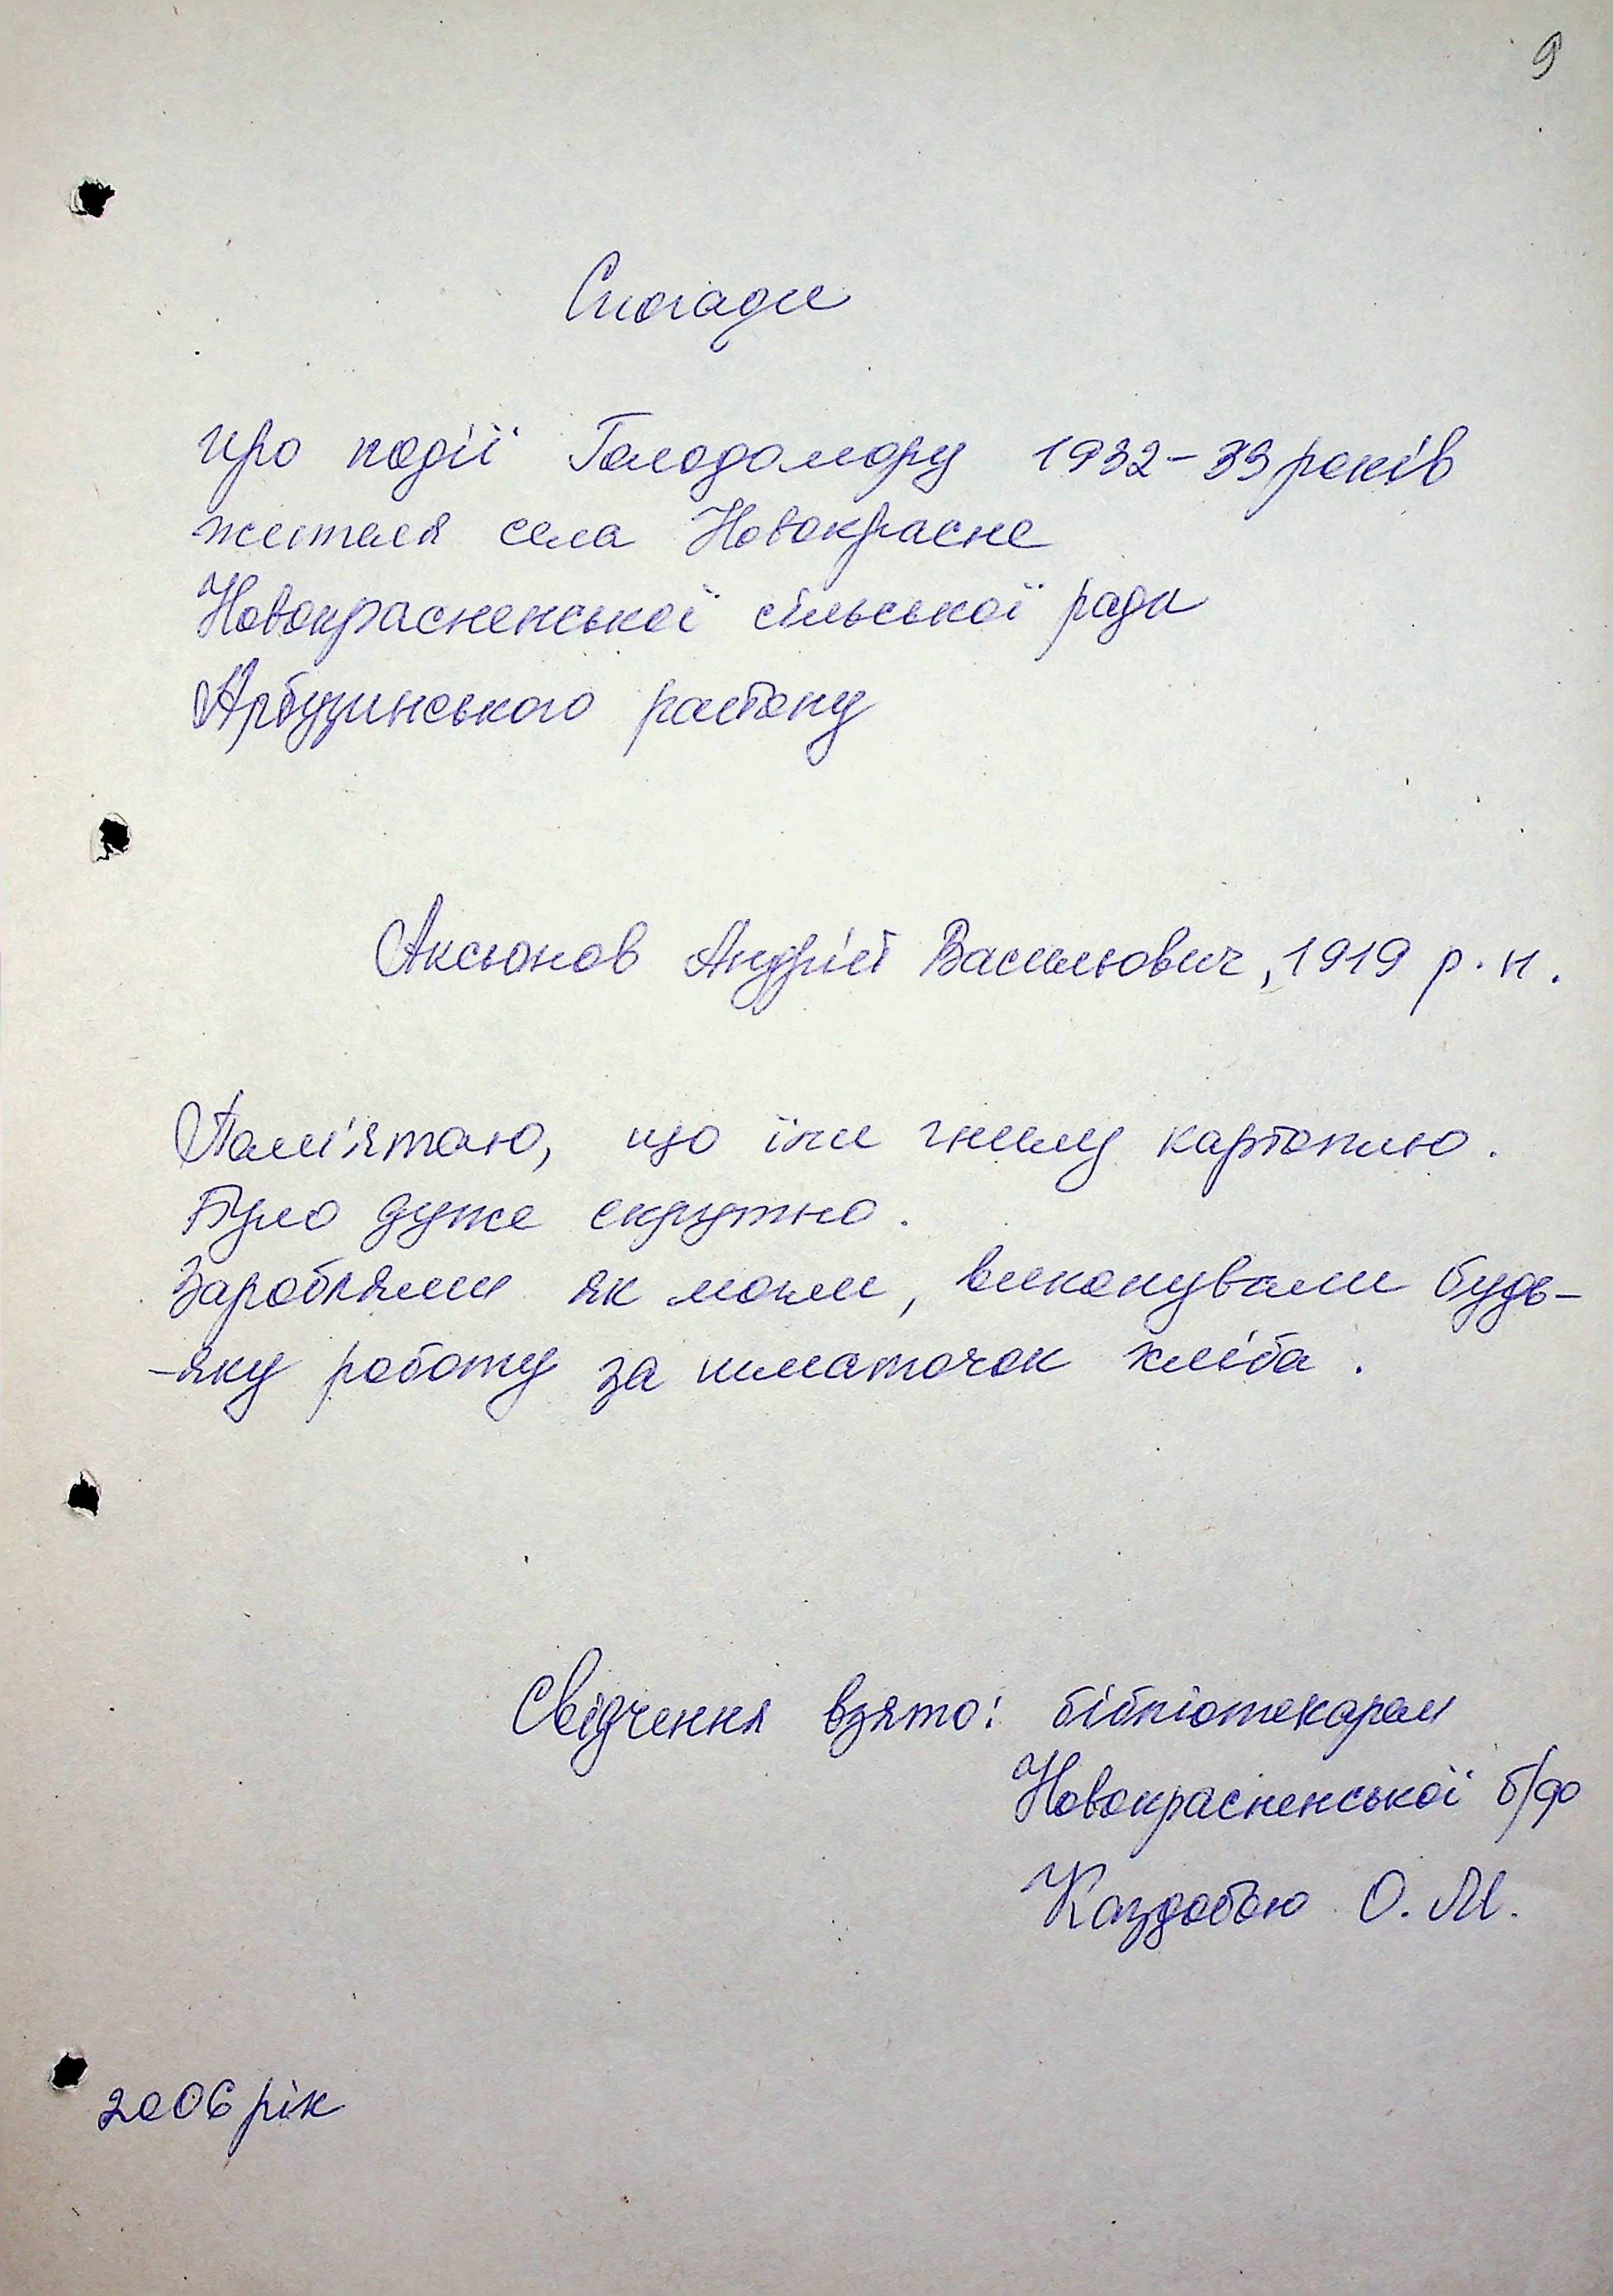 9
Спогади
про події Голодомору 1932-33 років
жителя села Новокрасне
Новокрасненської сільської ради
Арбузинського району
Аксьонов Андрій Васильович, 1919 р. н.
Пам'ятаю, що їли гнилу картоплю.
Було дуже скрутно.
Заробляли як могли, виконували будь-
-яку роботу за шматочок хліба.
Свідчення взято: бібліотекарем
Новокрасненської б/ф
Каздобою О. М.
2006 рік